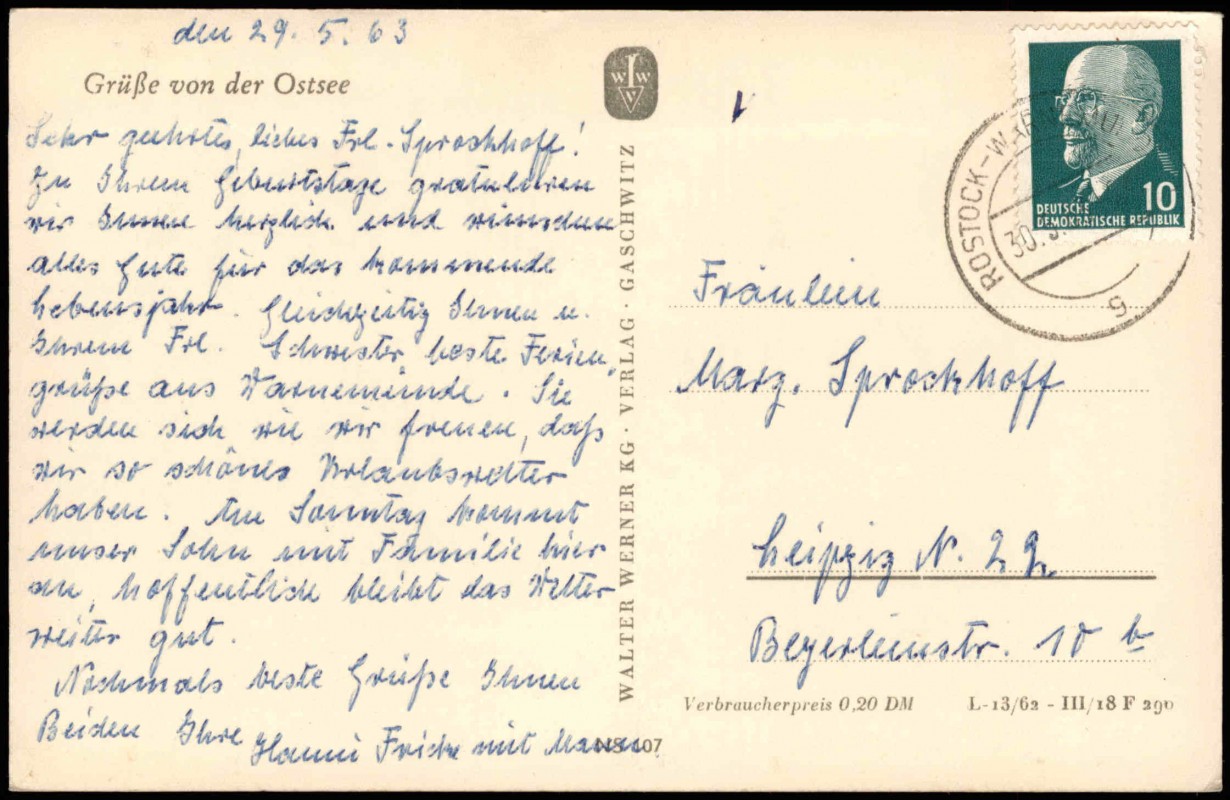 den 29. 5. 63
Grüße von der Ostsee
Sehr geehrtes, liebes Frl. Sprockhoff!
Zu Ihrem Geburtstage gratulieren
wir Ihnen herzlich und wünschen
alles Gute für das kommende
Lebensjahr. Gleichzeitig Ihnen u.
Ihrem Frl. Schwester beste Ferien
grüße aus Warnemünde. Sie
werden sich wie wir freuen, daß
wir so schönes Urlaubswetter
haben. Am Sonntag kommt
unser Sohn mit Familie hier
an, hoffentlich bleibt das Wetter
weiter gut.
Nochmals beste Grüße Ihnen
Beiden Ihre
Hanni Fricke mit Mann.
NS 407
W W W
WALTER WERNER KG · VERLAG · GASCHWITZ
10
DEUTSCHE
DEMOKRATISCHE REPUBLIK
ROSTOCK-WAR
30.5.
Fräulein
Marg. Sprockhoff
Leipzig N. 22
Beyerleinstr. 10 b
Verbraucherpreis 0,20 DM
L-13/62 - III/18 F 290